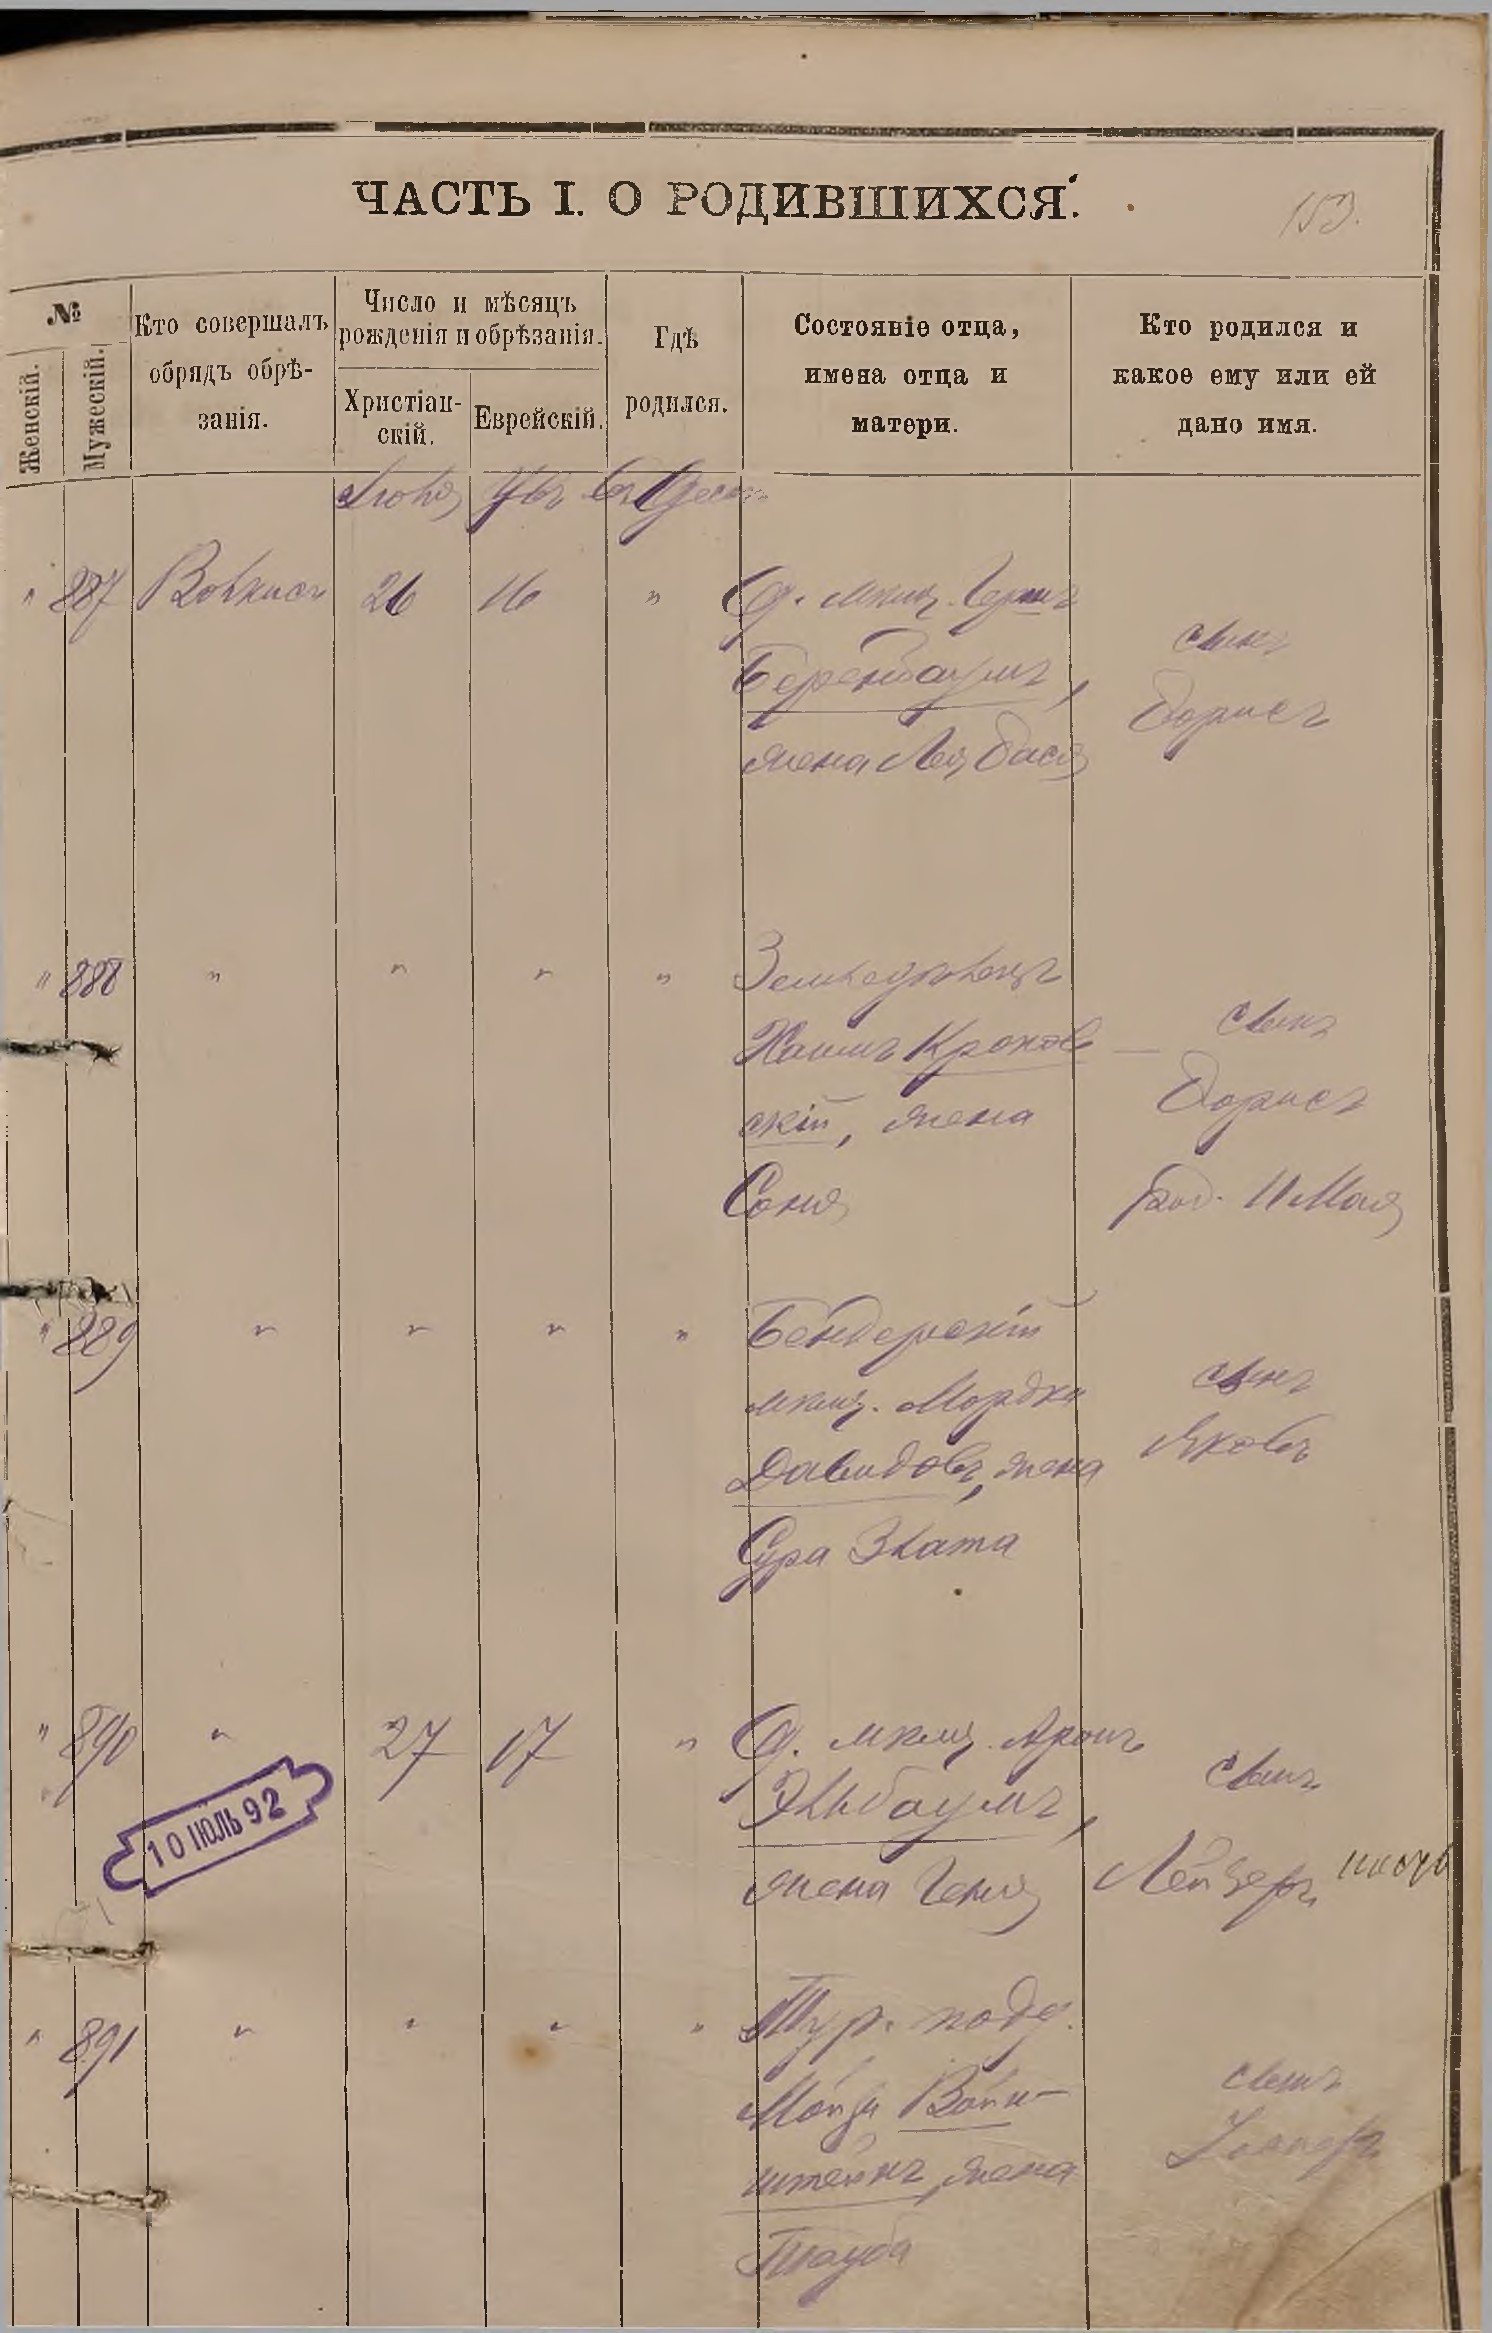 ЧАСТЬ I. О РОДИВШИХСЯ.
153.
№
Женскій.
Мужескій.
Кто совершалъ
обрядъ обрѣ-
занія.
Число и мѣсяцъ
рожденія и обрѣзанія.
Христіан-
скій.
Еврейскій.
Гдѣ
родился.
Состояніе отца,
имена отца и
матери.
Кто родился и
какое ему или ей
дано имя.
въ Одессѣ
" 887 26 16 " О. мѣщ. Герш
Беренбаумъ,
жена Лея Бася
сынъ
Борисъ
" 888 " " " " Земледѣлецъ
Хаимъ Кронов-
скій, жена
Соня
сынъ
Борисъ
род. 11 Мая
" 889 " " " " Бендерскій
мѣщ. Мордка
Давидовъ, жена
Сура Злата
сынъ
Яковъ
" 890 " 27 17 " О. мѣщ. Аронъ
Эльбаумъ,
жена Геня
сынъ
Лейзеръ
10 ІЮЛЬ 92
" 891 " " " " Тур. подд.
Вайн-
штейнъ, жена
Тауба
сынъ